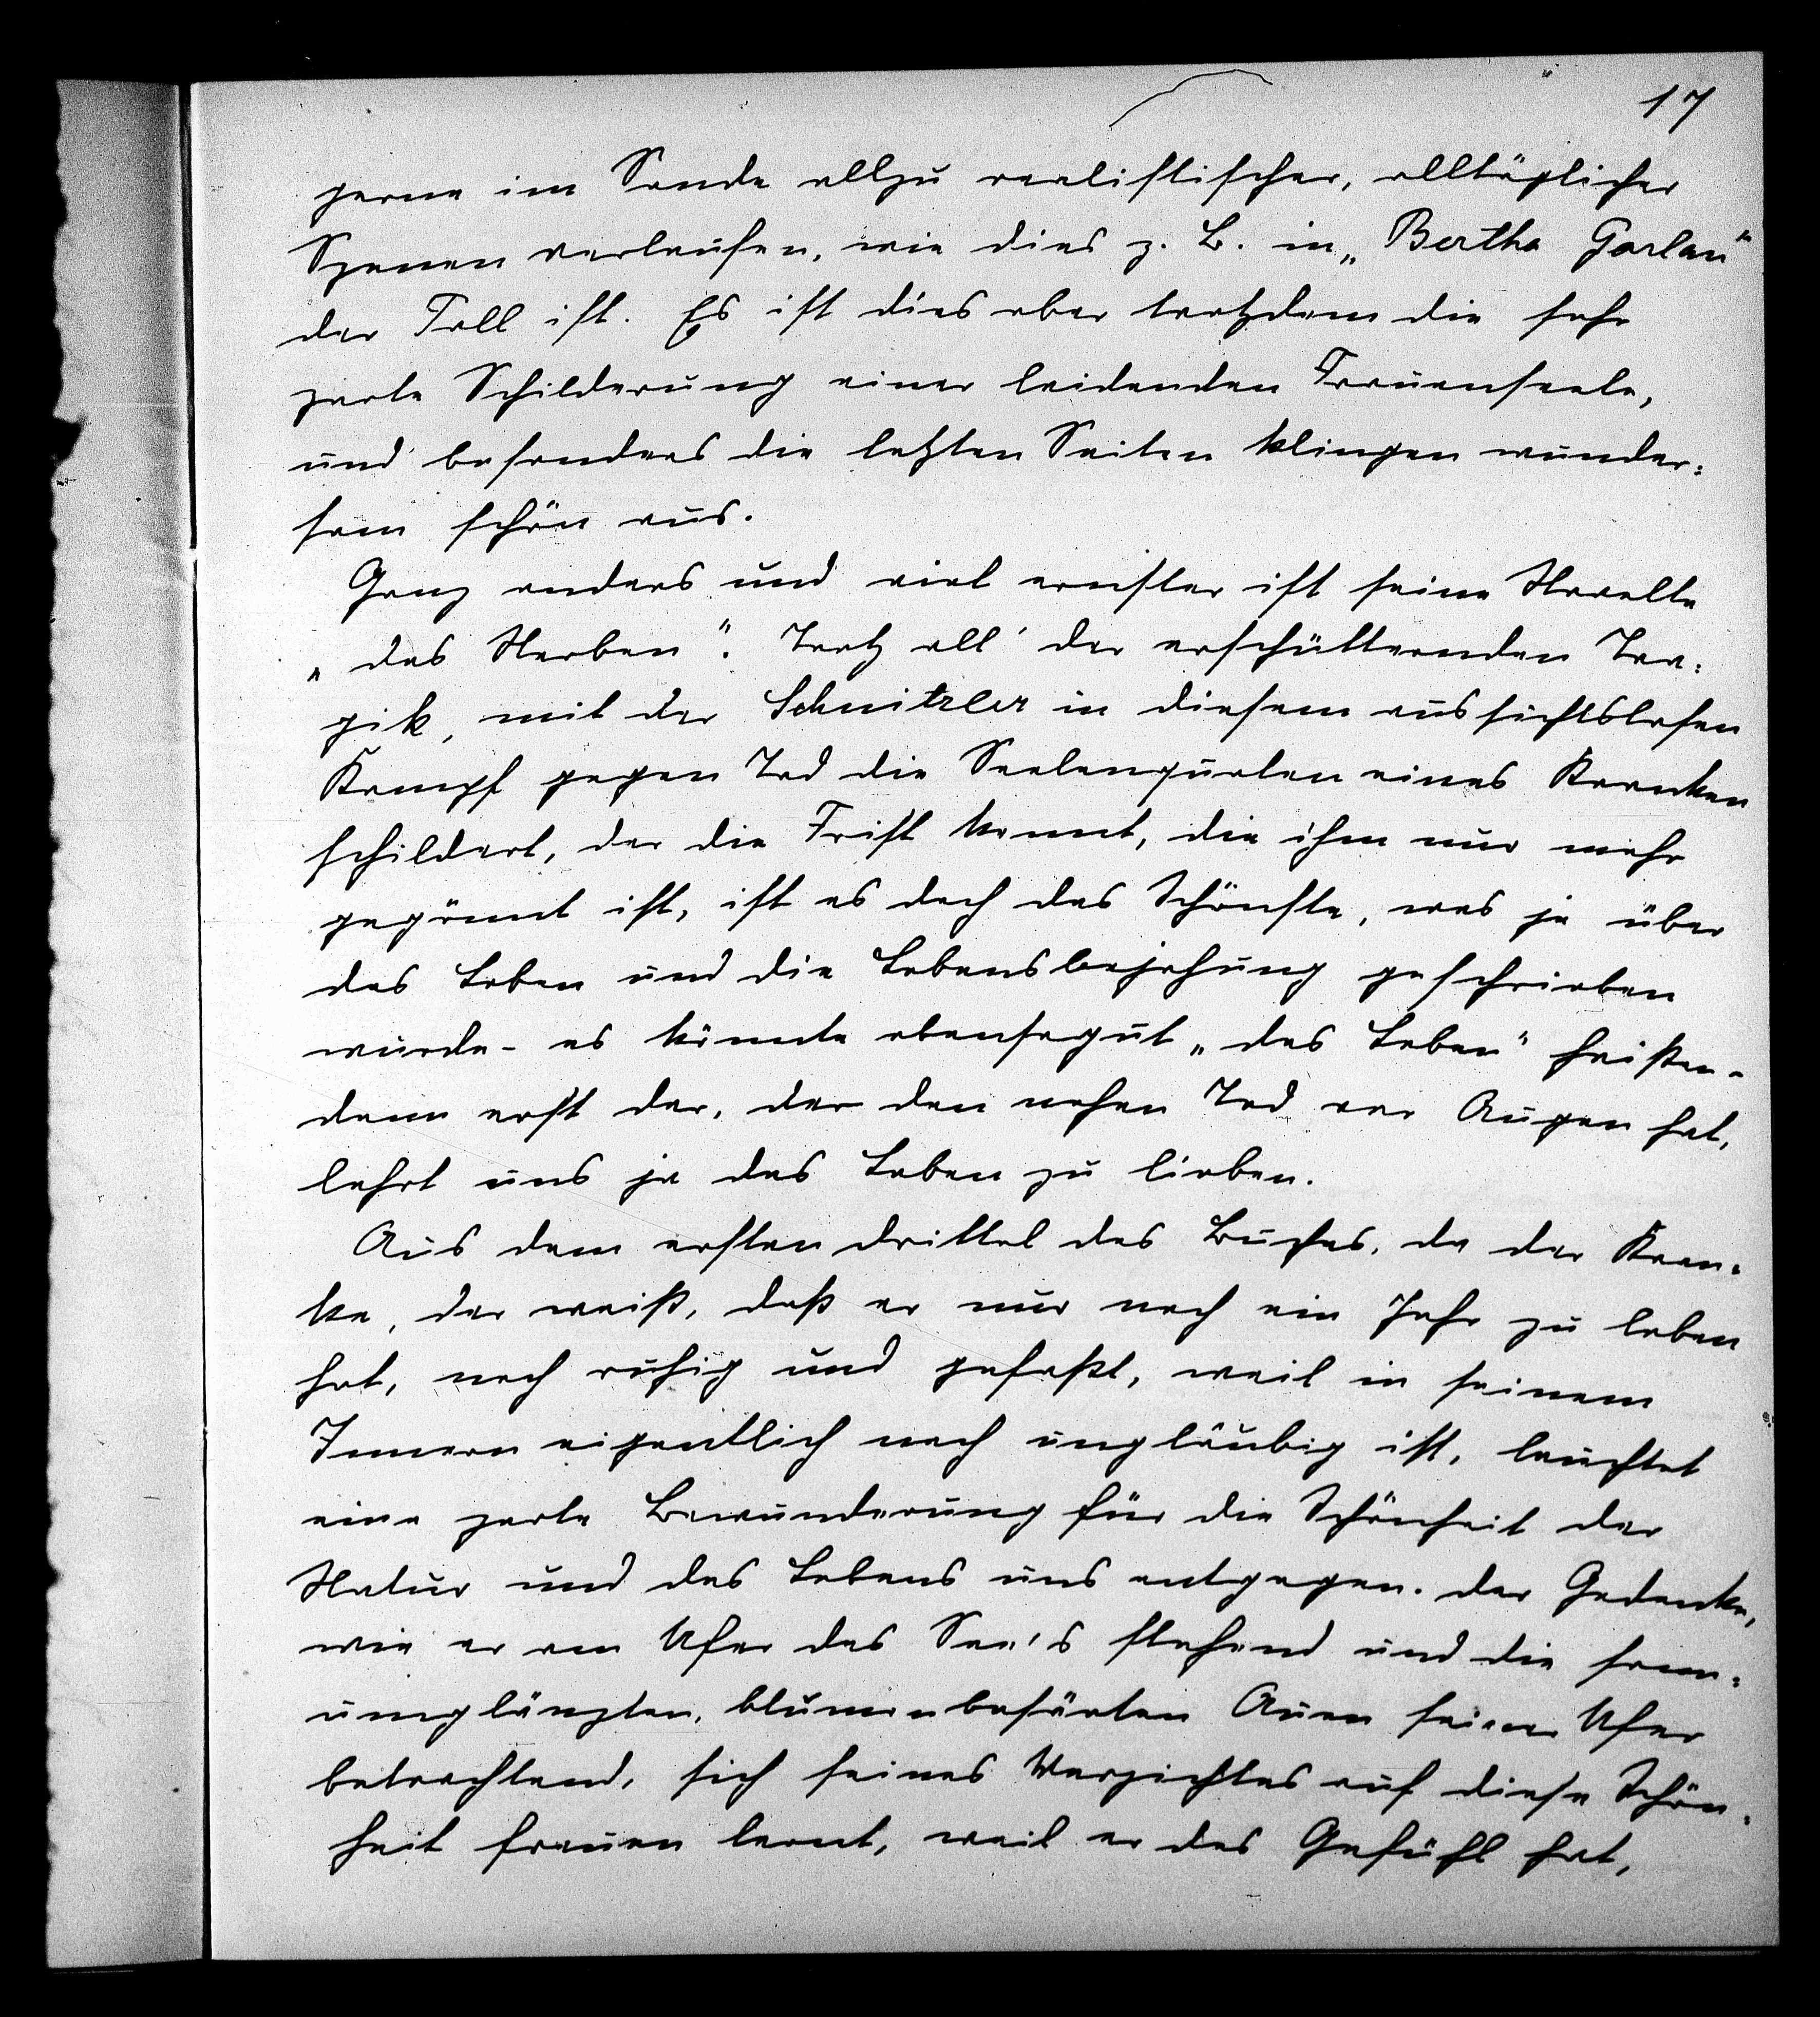 17
gerne im Sande allzu realistischer, alltäglicher
Szenen verlaufen, wie dies z. B. in „Bertha Garlan"
der Fall ist. Es ist dies aber trotzdem die sehr
zarte Schilderung einer leidenden Frauenseele,
und besonders die letzten Seiten klingen wunder=
sam schön aus.
Ganz anders und viel ernster ist seine Novelle
„das Sterben". Trotz all' der erschütternden Tra=
gik, mit der Schnitzler in diesem aussichtslosen
Kampf gegen Tod die Seelenqualen eines Kranken
schildert, der die Frist kennt, die ihm nur mehr
gegönnt ist, ist es doch das Schönste, was je über
das Leben und die Lebensbejahung geschrieben
wurde - es könnte ebensogut „das Leben" heißen -
denn erst der, der den nahen Tod vor Augen hat,
lehrt uns ja das Leben zu lieben.
Aus dem ersten Drittel des Buches, da der Kran=
ke, der weiß, daß er nur noch ein Jahr zu leben
hat, noch ruhig und gefaßt, weil in seinem
Innern eigentlich noch ungläubig ist, leuchtet
eine zarte Bewunderung für die Schönheit der
Natur und des Lebens uns entgegen. Der Gedanke,
wie er am Ufer des See's stehend und die sonn=
umglänzten, blumenbesäeten Auen seiner Ufer
betrachtend, sich seines Verzichtes auf diese Schön=
heit freuen lernt, weil er das Gefühl hat,